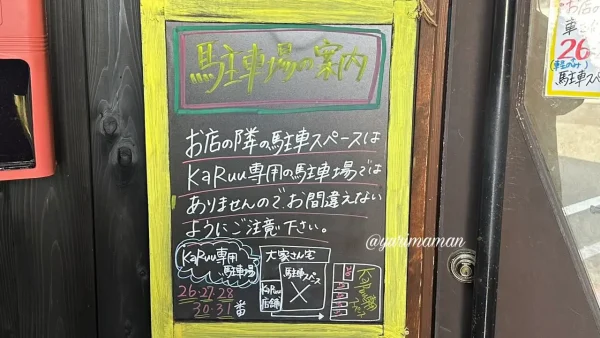 駐車場の案内
お店の隣の駐車スペースは
KaRuu専用の駐車場では
ありませんので、お間違えない
ようにご注意下さい。
@yurimaman
KaRuu専用
駐車場
26・27・28
30・31番
大家さん宅
駐車スペース
×
KaRuu
店舗
お店の
26
(軽のみ)